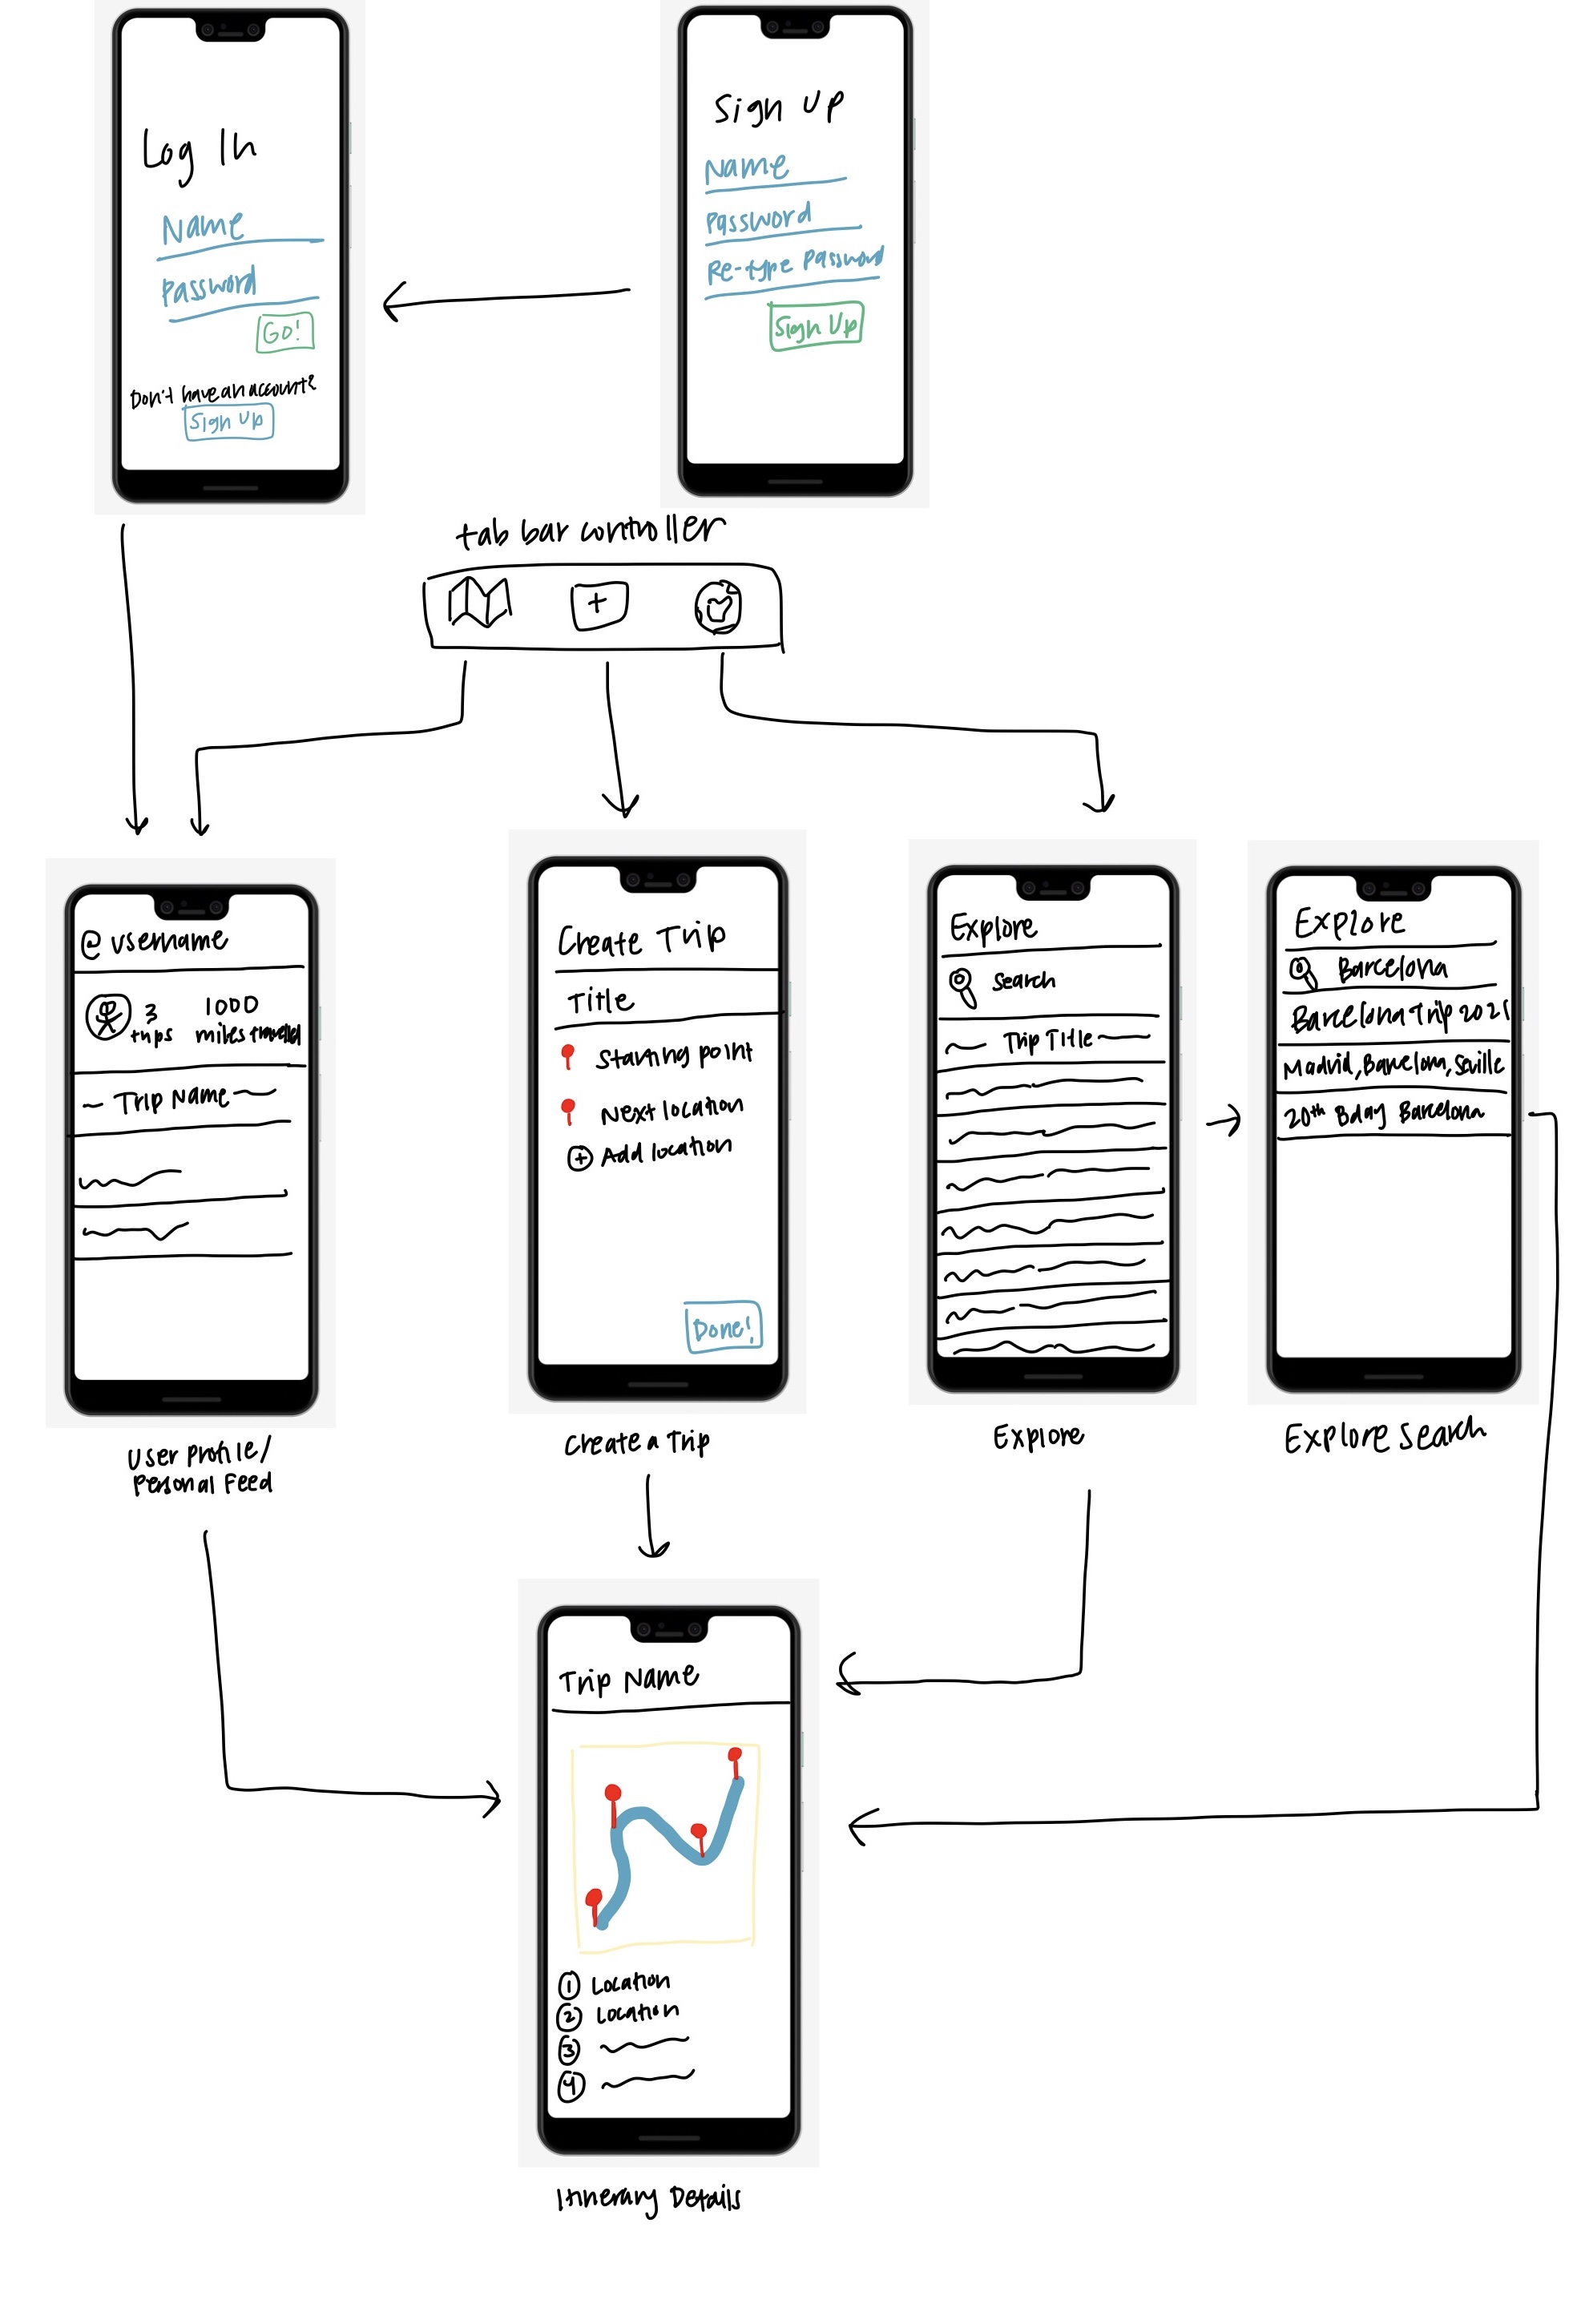 Log In
Name
Password
Go!
Don't have an account?
Sign Up
Sign Up
Name
Password
Re-type Password
Sign Up
tab bar controller
+
@username
3
trips
1000
miles travelled
Trip Name
User Profile/
Personal Feed
Create Trip
Title
Starting point
Next location
+ Add location
Done!
Create a Trip
Explore
Search
Trip Title
Explore
Explore
Barcelona
Barcelona Trip 2021
Madrid, Barcelona, Seville
20th Bday Barcelona
Explore Search
Trip Name
1 Location
2 Location
3
4
Itinerary Details